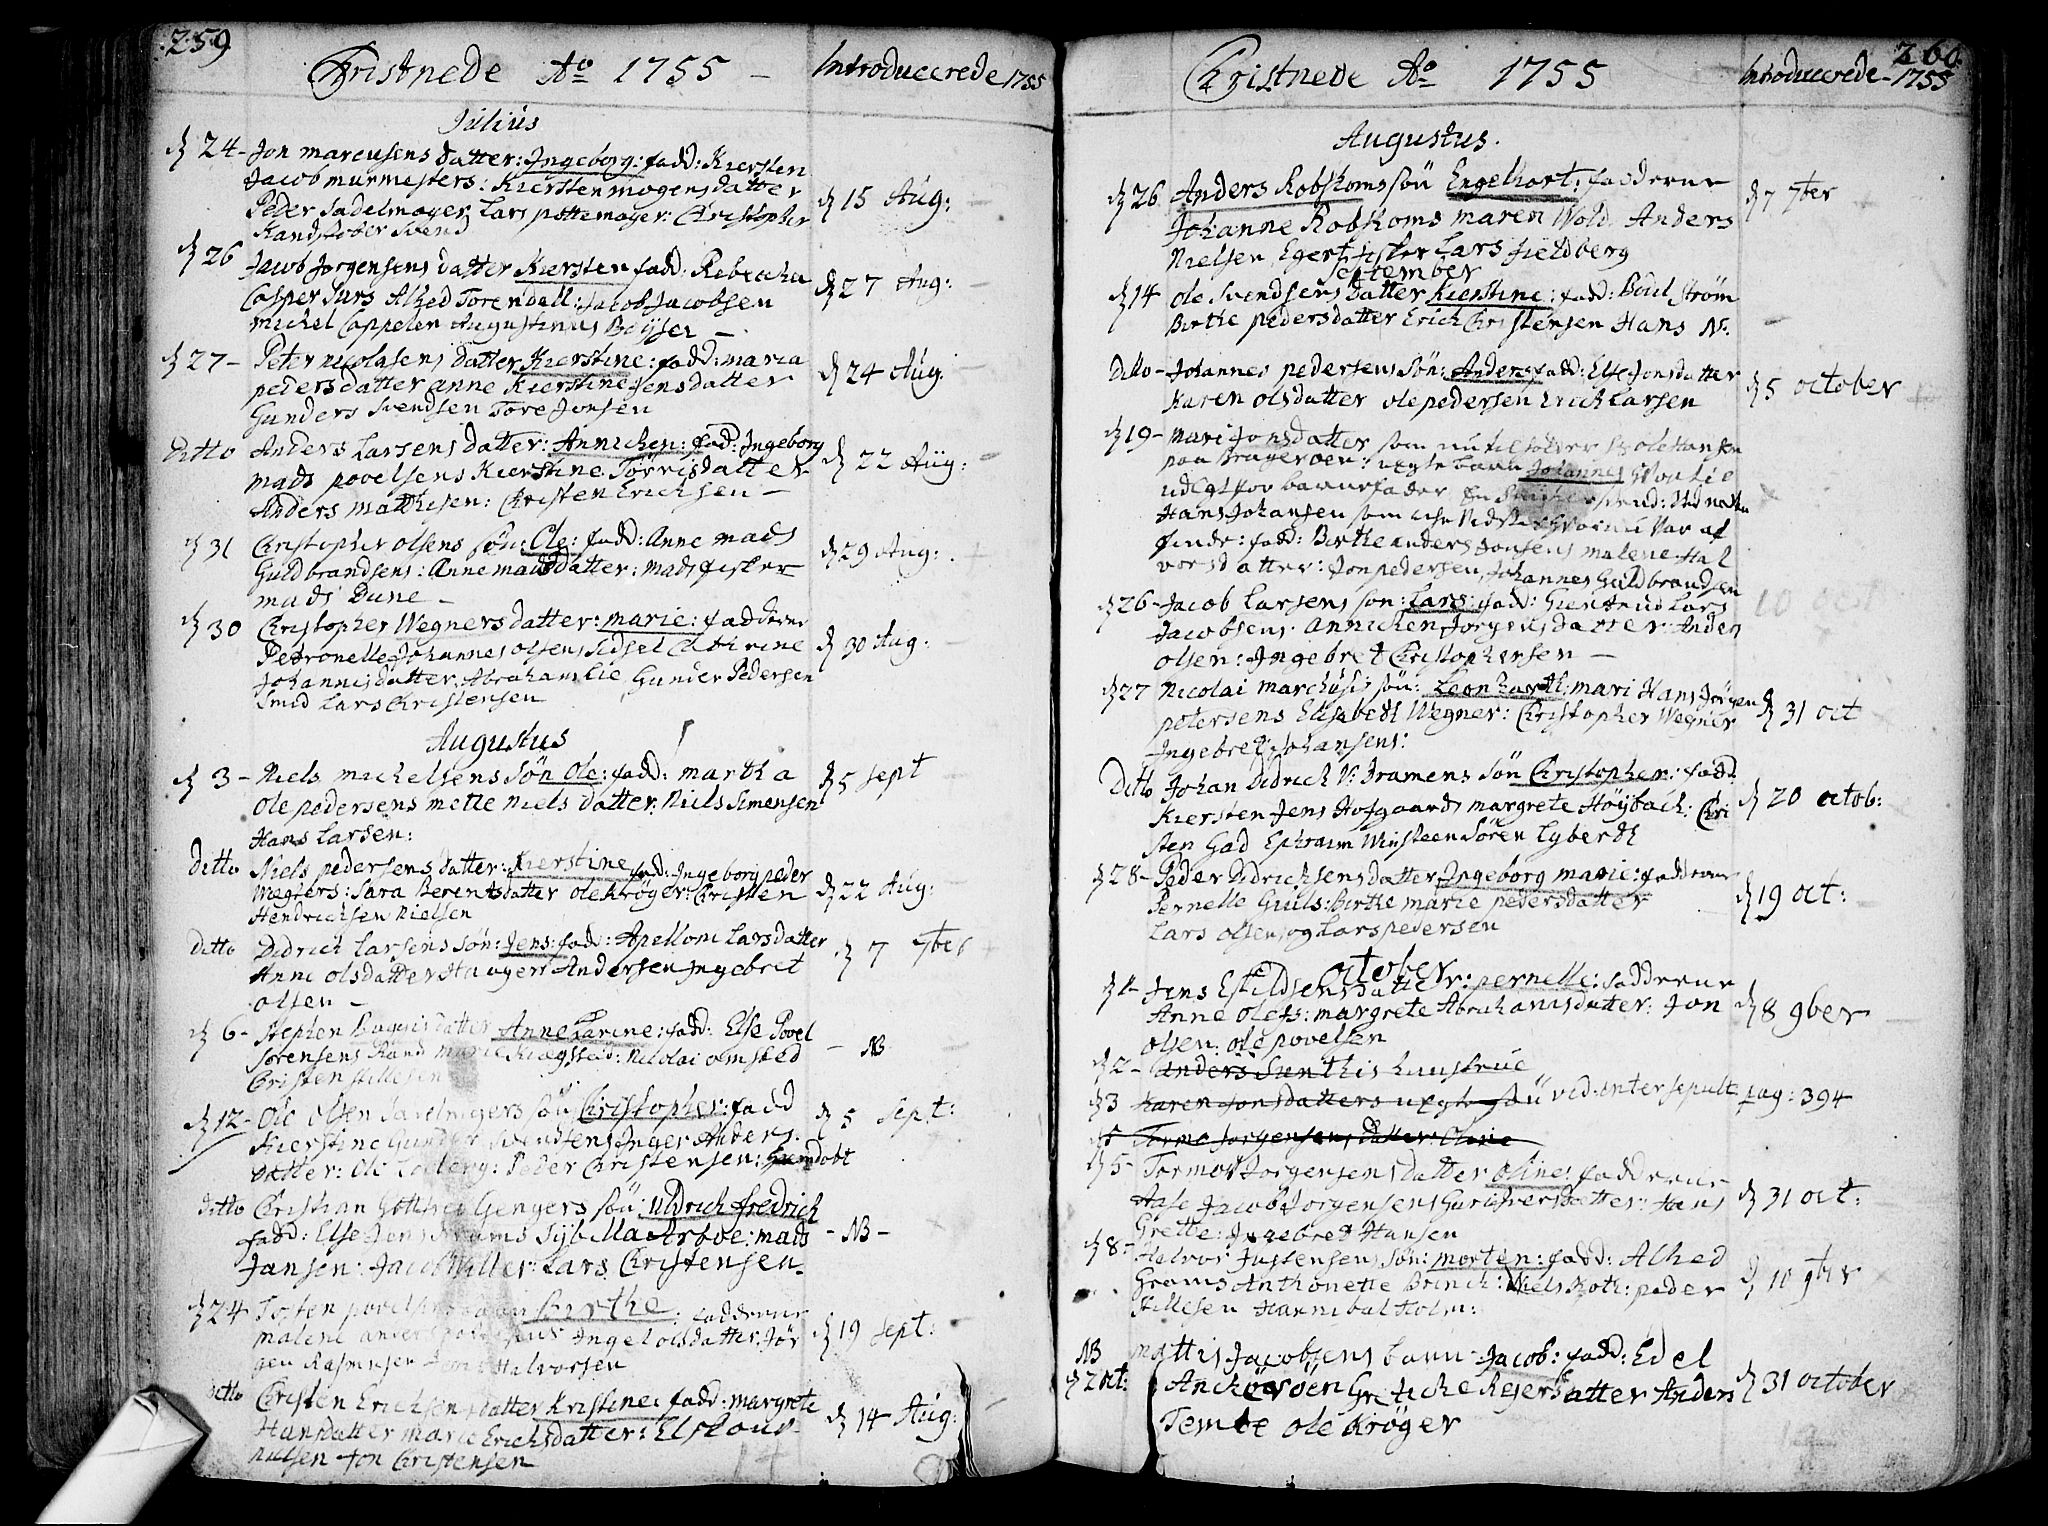 259
Christnede Ao 1755 – Introducerede 1755
Julius
d 24 - Jon marcusens datter: Ingeborg: fadd: Kiersten
Jacob murmesters: Kiersten mogensdatter
Peder Sadelmager Lars pottemager: Christopher
Kandstøber Svend
d 15 Aug:
d 26 Jacob Jorgensens datter Kiersten fadd: Rebecha
Casper Surs Alhed Torendall: Jacob Jacobsen
Michel Cappelen Augustinus Beÿser –
d 27 Aug:
d 27 - Peter nicolasens datter Kierstine: fadd: maria
pedersdatter anne Kierstine Jensdatter
Gunders Svendsen Tore Jonsen
d 24 Aug.
Ditto Anders Larsens datter: Annichen: fad: Ingeborg
mads povelsens Kierstine Törrisdatter
Anders Matthisen: Christen Erichsen –
d 22 Aug:
d 31 Christopher olsens søn: Ole: fadd: Anne mads
Guldbrandsens: Anne madsdatter: mads fisker
mads Dune –
d 29 Aug:
d 30 Christopher Wegners datter: marie: fadderne
Petronelle Johannes olsens Sidsel Cathrine
Johannisdatter: Abraham Lie Gunder Pedersen
Smed Lars Christensen
d 30 Aug:
Augustus
d 3 - Niels michelsens søn Ole: fadd: martha
Ole pedersens mette Nielsdatter: Niels Simensen
Hans Larsen:
d 5 sept
Ditto Niels pedersens datter: Kierstine fad: Ingeborg peder
Wegters: Sara Berentsdatter ole Krøger: Christen
Hendrichsen Nielsen
d 22 Aug:
Ditto Didrich Larsens søn: Jens: fad: Apelloni Larsdatter
Anne olsdatter Haagen Andersen Ingebret
olsen –
d 7 7ber
d 6 - Stephen datter Anne Karine: fadd: Else Povel
Sørensens Rand Marie Krogsted: Nicolai omsted
Christen Stillesen
NB
d 12 - Ole olsen søn Christopher: fadd
Kierstine Gunder Svendsens Inger Anders
datter: Ole Lolberg: Peder Christensen: hiemdøbt
d 5 sept:
ditto Christian Gottfred Gengers søn: Uldrich fredrich
fadd: Else Jens Sÿbilla Arboe: mads
Jansen: Jacob Lars Christensen
- NB -
d 24 Tosten Birthe: fadderne
malene anders Ingel olsdatter: Jør
gen Rasmusen Halvorsen
d 19 sept:
ditto Christen Erichsens datter Kristine: fadd: margrete
Hansdatter marie Erichsdatter: El
nielsen Jon Christensen
d 14 Aug:
260
Christnede Ao 1755 Introducerede - 1755
Augustus.
d 26 Anders Robskoms søn Engelhart: fadderne
Johanne Robskoms maren Wold Anders
Nielsen Egert fisker Lars fieldberg
d 7 7ber
September
d 14 Ole Svendsens datter Kierstine: fadd: Boel Strøm
Birthe pedersdatter Erich Christensen Hans N.
Ditto - Johannes pedersens søn: Anders fadd: Else Jonsdatter
Karen olsdatter ole pedersen Erich Larsen
d 5 october
d 19 - Mari Jonsdatter som nu til holder hos ole Hansen
paa Bragerøen: uegte barn Johannes hvortil
udlagt for barnefader
Hans Johansen som icke vidste hvorn var af
finde: fadd: Birthe anders Jonsens malene Hal
vorsdatter: Jon pedersen, Johannes Guldbrandsen
d 26 - Jacob Larsens søn: Lars: fadd: Giertrud Lars
Jacobsens. Annichen Jorgensdatter: Anders
olsen: Ingebret Christophersen –
d 27 Nicolai Marchusis søn: Leonhardt: mari Hans Jørgen
petersens Elisabeth Wegner: Christopher Wegner
Ingebret Johansens:
d 31 oct
Ditto Johan Didrich V: Jramens søn Christopher: fadd:
Kiersten Jens Hofgaards margrete Høÿbach: Chri
sten Gad Ephraim Winsteen Søren Lyberth
d 20 octob:
d 28 - Peder Didrichsens datter Ingeborg marie: fadderne
Pernelle Guuls: Birthe marie pedersdatter
Lars olsen og Lars pedersen
d 19 oct:
october
d 1 - Jens Eskildsens datter: pernelle: fadderne
Anne Olefs: margrete Abrahamsdatter: Jon
olsen: ole povelsen
d 8 9ber
d 2 - anders Sunthis hustrue
d 3 Karen Jonsdatters uegte søn vid: inter sepult pag: 394
d 5 Tormo Jorgensens datter: Olinie
d 5 - Tormos Jorgensens datter olsine: fadderne
Aase Jacob Jorgensens Guri Iversdatter: Hans
Grette: Ingebret Hansen
d 31 oct:
d 8 - Halvor Justensens søn: morten: fadd: Alhed
Grams Anthonette Brinch: Niels Roth: peder
Stillesen Hannibal Holm:
d 10 9ber
NB Mattis Jacobsens barn Jacob: fadd: Edel
d 2 oct: Anchersøen Gretche Reiersdatter Anders
Temte ole Krøger
d 31 october